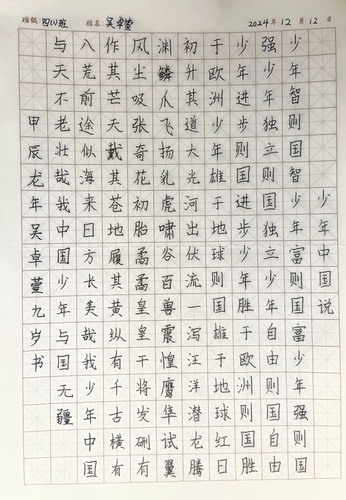 班级:四(1)班 姓名:吴卓萱 2024年12月12日
少年中国说
少年智则国智少年富则国富少年强则国
强少年独立则国独立少年自由则国自由
少年进步则国进步少年胜于欧洲则国胜
于欧洲少年雄于地球则国雄于地球红日
初升其道大光河出伏流一泻汪洋潜龙腾
渊鳞爪飞扬乳虎啸谷百兽震惶鹰隼试翼
风尘吸张奇花初胎矞矞皇皇干将发硎有
作其芒天戴其苍地履其黄纵有千古横有
八荒前途似海来日方长美哉我少年中国
与天不老壮哉我中国少年与国无疆
甲辰龙年吴卓萱九岁书